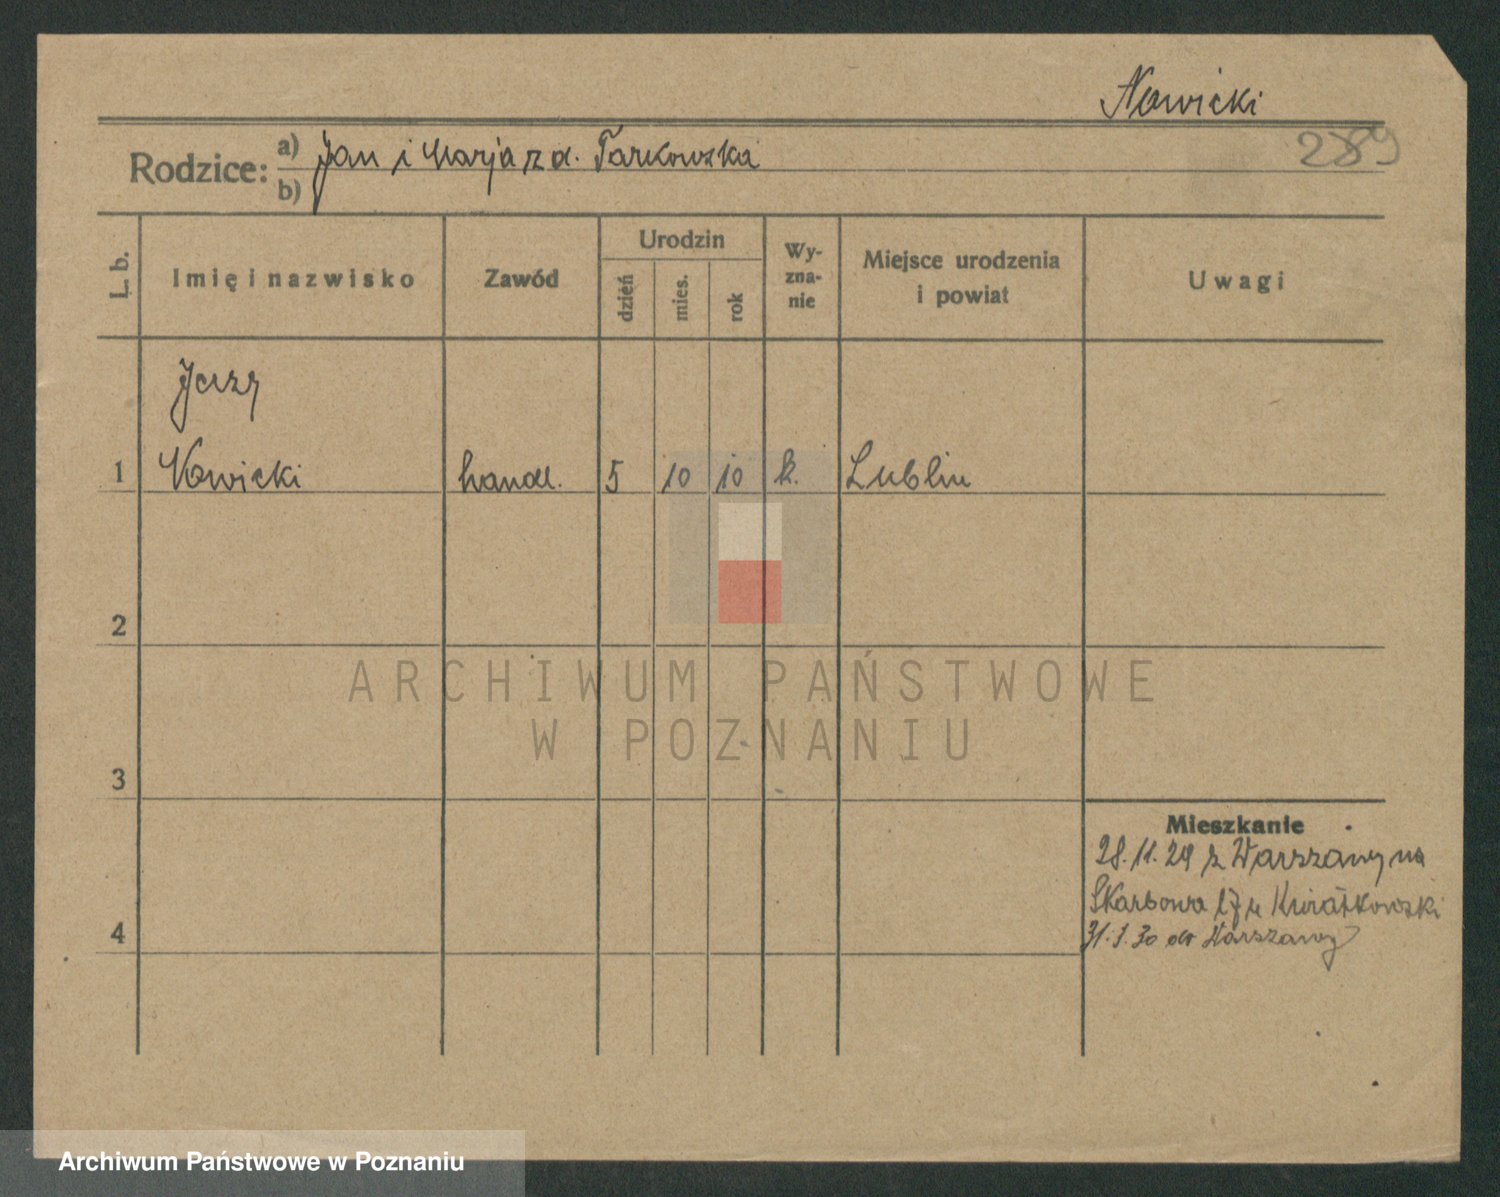 Nowicki
289
Rodzice: a) Jan i Marja z d. Tarkowska
b)
L. b.
Imię i nazwisko
Zawód
Urodzin
dzień
mies.
rok
Wy-
zna-
nie
Miejsce urodzenia
i powiat
Uwagi
Jerzy
1 Nowicki handl. 5 10 10 k. Lublin
2
ARCHIWUM PAŃSTWOWE
W POZNANIU
3
Mieszkanie
28.11.29 z Warszawy na
Skarbowa 17 u Kwiatkowski
4
31.3.30 do Warszawy
Archiwum Państwowe w Poznaniu